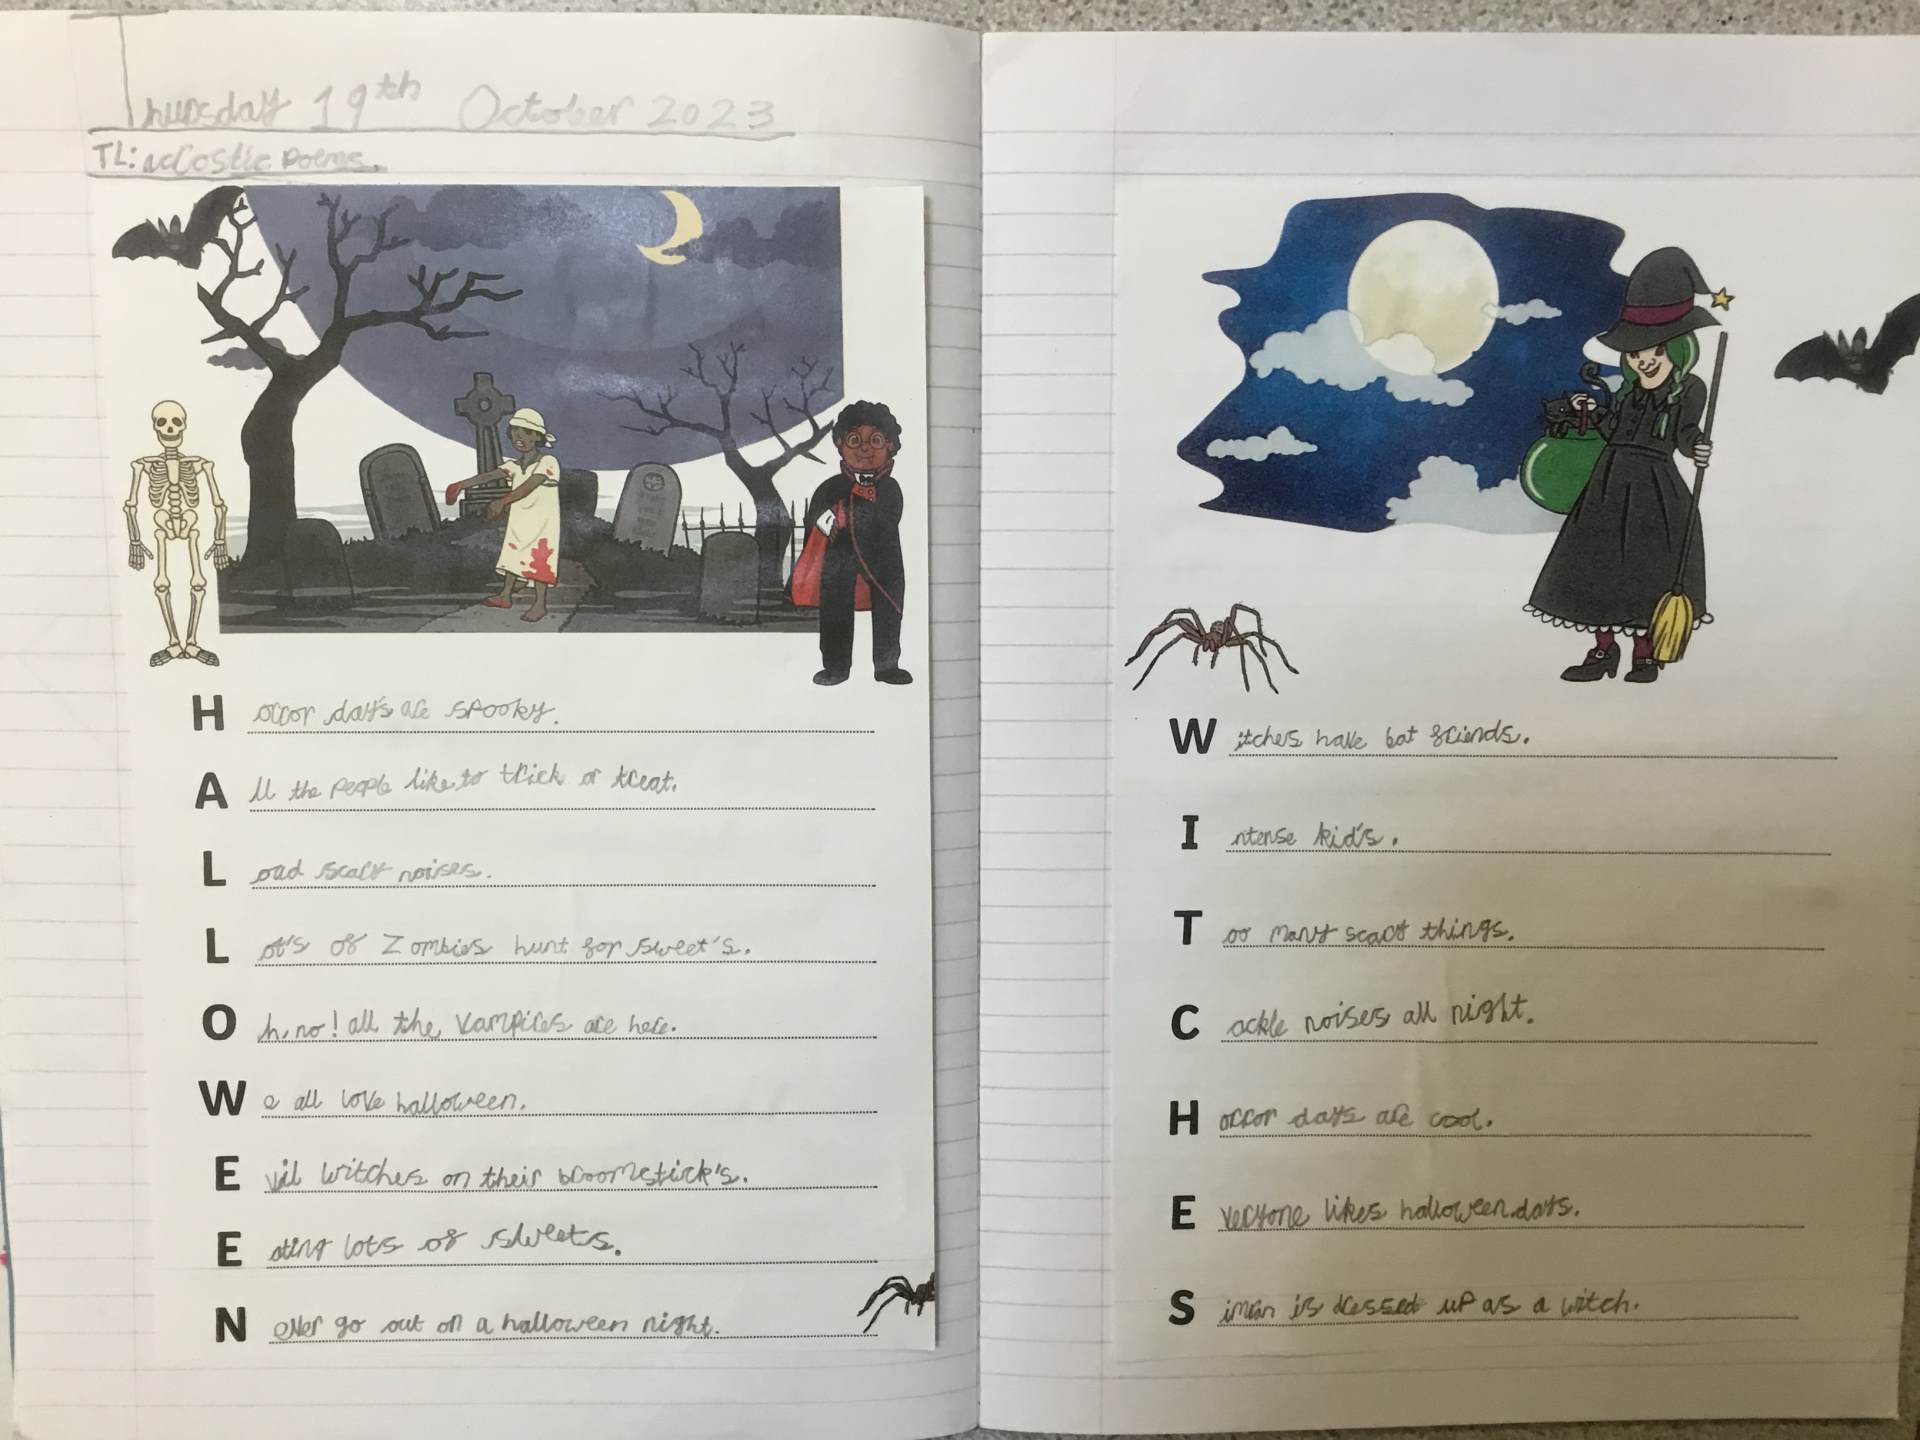 Thursday 19th October 2023
TL: acrostic poems.
Horror day's are spooky.
All the people like to trick or treat.
Loud scary noises.
Lot's of Zombies hunt for sweet's.
Oh, no! all the vampires are here.
We all love halloween.
Evil witches on their broomstick's.
Eating lots of sweets.
Never go out on a halloween night.
Witches have bat friends.
Intense kid's.
Too many scary things.
Cackle noises all night.
Horror days are cool.
Everyone likes halloween days.
is dressed up as a witch.